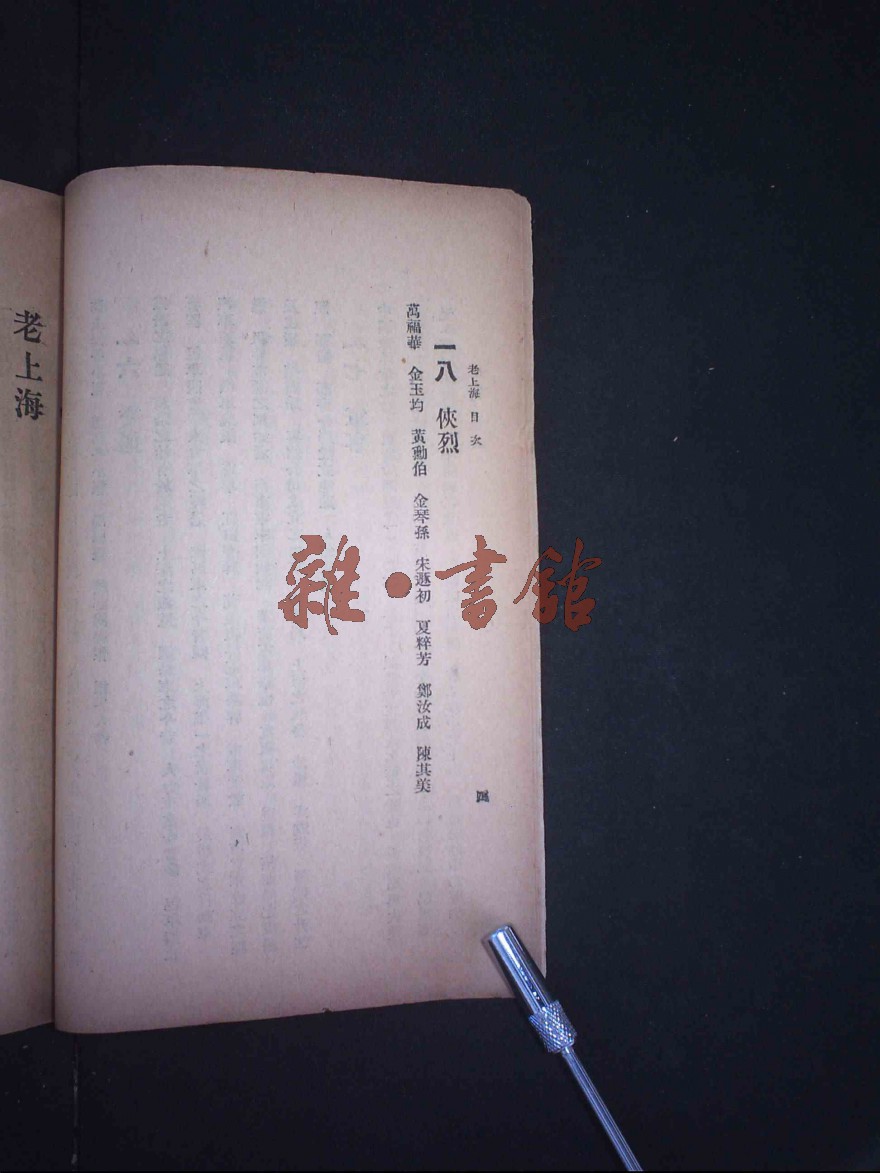 老上海 目次
一八 俠烈
萬福華 金玉均 黃勳伯 金琴孫 宋遯初 夏粹芳 鄭汝成 陳其美
四
老上海
雜·書館